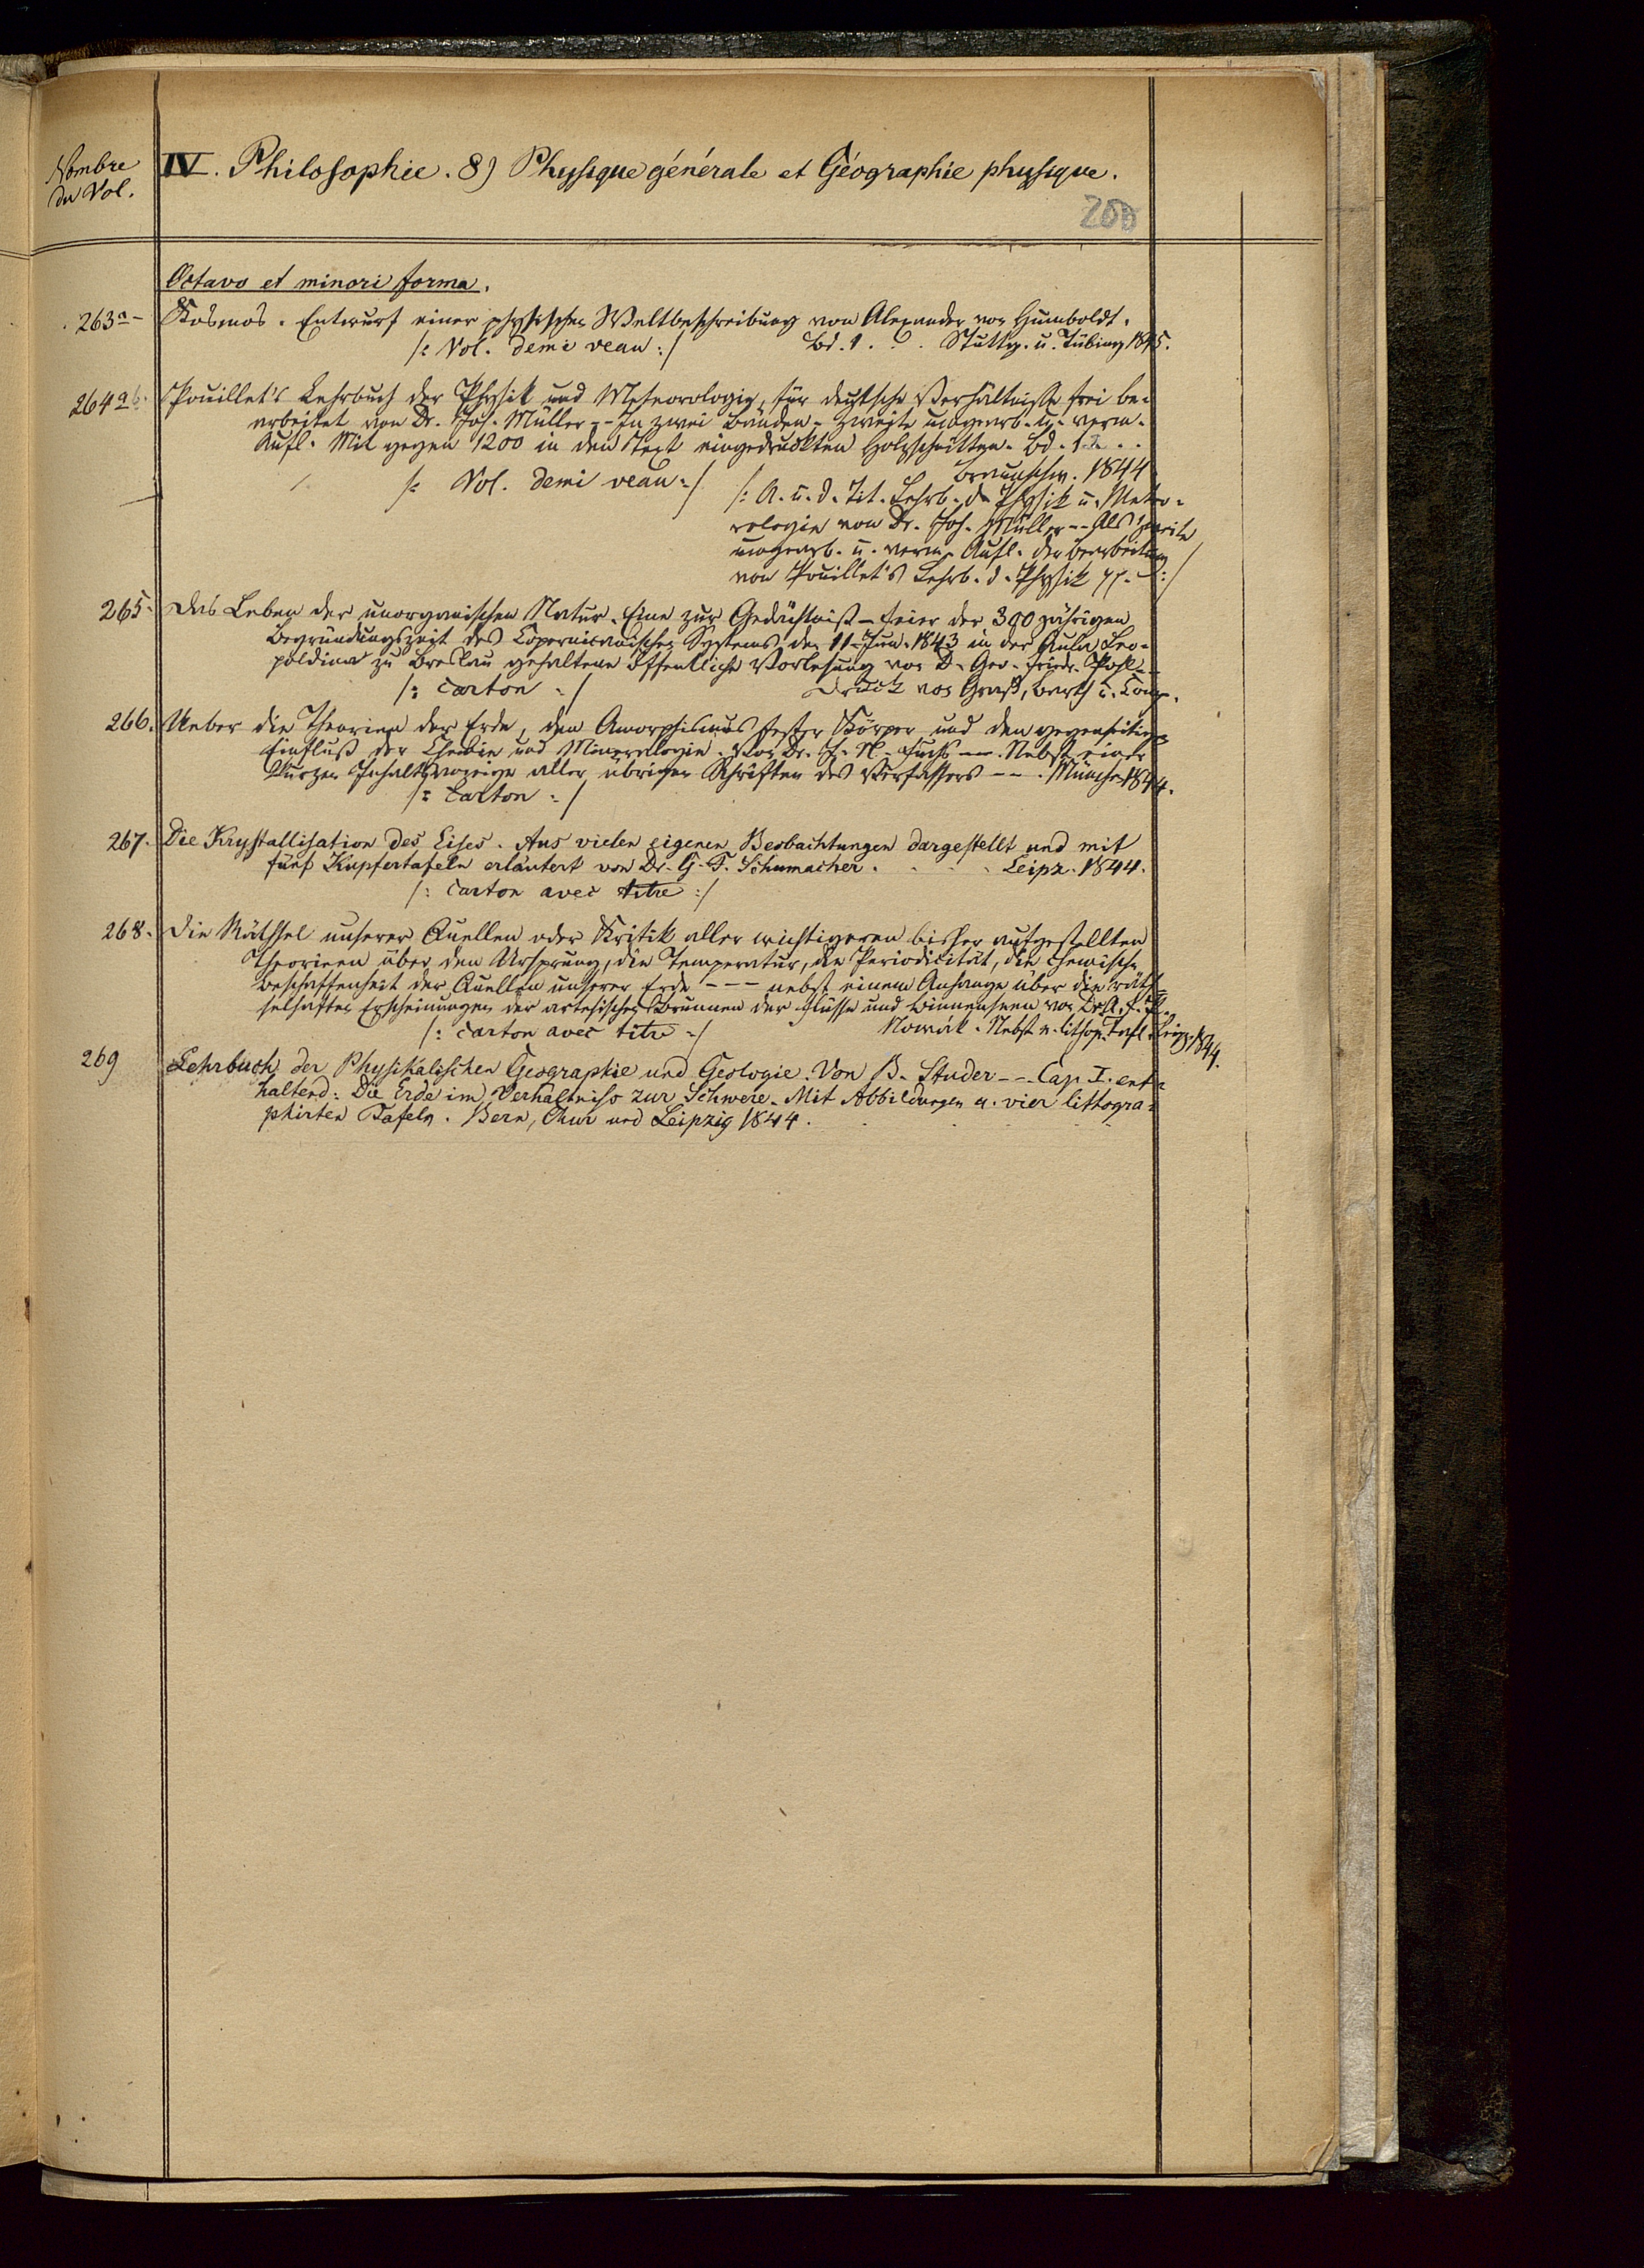 Nombre
du Vol.
IV. Philosophie. 8) Physique générale et Géographie physique.
200
Octavo et minori forma.
263a Kosmos. Entwurf einer physischen Weltbeschreibung von Alexander von Humboldt.
/: Vol. demi veau :/ Bd. 1. . . Stuttg. u. Tübing 1845.
264ab. Pouillet's Lehrbuch der Physik und Meteorologie, für deutsche Verhältnisse frei be=
arbeitet von Dr. Joh. Müller -- In zwei Bänden. Zweite umgearb. u. verm.
Aufl. Mit gegen 1200 in den Text eingedruckten Holzschnitten. Bd. 1.2. . .
Braunschw. 1844
/: Vol. demi veau :/ /: A. u. d. Tit. Lehrb. d. Physik u. Meteo=
rologie von Dr. Joh. Müller -- Als zweite
umgearb. u. verm. Aufl. der Bearbeitung
von Pouillet's Lehrb. d. Physik :/
265. Das Leben der unorganischen Natur. Eine zur Gedächtniß-Feier der 300 jährigen
Begründungszeit des Copernicanischen Systems den 11 Jun. 1843 in der Aula Leo=
poldina zu Breslau gehaltene öffentliche Vorlesung von D. Geo. Friedr. Pohl --
/: carton :/ Druck von Graß, Barth u. Comp.
266. Ueber die Theorien der Erde, den Amorphismus fester Körper und den gegenseitigen
Einfluß der Chemie und Mineralogie. Von Dr. J. N. Fuchs --- Nebst einer
kurzen Inhaltsanzeige aller übrigen Schriften des Verfassers --. München 1844.
/: Carton :/
267. Die Krystallisation des Eises. Aus vielen eigenen Beobachtungen dargestellt und mit
fünf Kupfertafeln erläutert von Dr. G. F. Schumacher. . . . . Leipz. 1844.
/: Carton avec titre :/
268. Die Räthsel unserer Quellen oder Kritik aller wichtigeren bisher aufgestellten
Theorieen über den Ursprung, die Temperatur, die Periodicität, die chemische
Beschaffenheit der Quellen unserer Erde --- nebst einem Anhange über die räth=
selhaften Erscheinungen der artesischen Brunnen der Flüsse und Binnenseen von Dr. A. F. P.
/: Carton avec titre :/ Nowák. Nebst e. lithogr. Tafl. Leipz. 1844.
269 Lehrbuch der Physikalischen Geographie und Geologie. Von B. Studer --. Cap. I. ent=
haltend: Die Erde im Verhältniss zur Schwere. Mit Abbildungen u. vier littogra=
phirten Tafeln. Bern, Chur und Leipzig 1844.